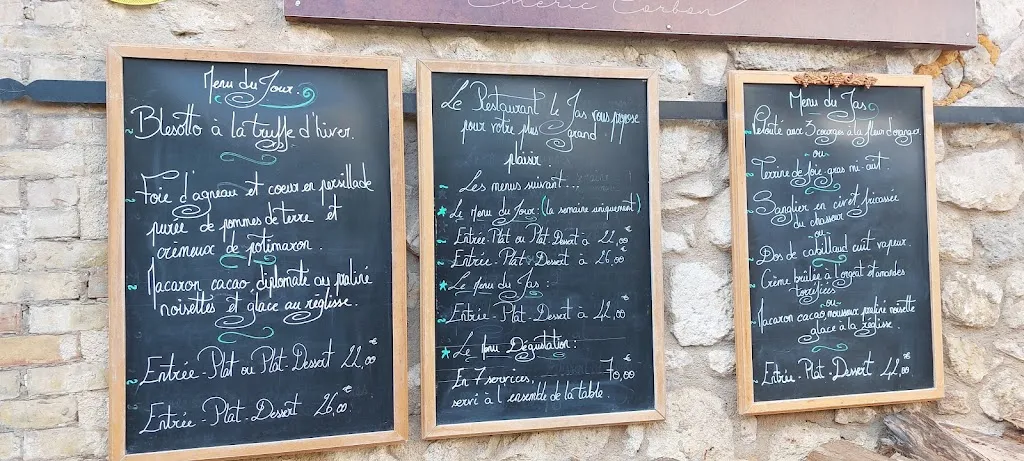 Emeric Corbon
Menu du Jour.
Blesotto à la truffe d'hiver.
Foie d'agneau et coeur en persillade
purée de pommes de terre et
crèmeux de potimaron.
Macaron cacao, diplomate au praliné
noisettes et glace au réglisse.
Entrée-Plat ou Plat-Dessert 22,00€
Entrée-Plat-Dessert 26,00€
Le Restaurant le Jas vous propose
pour votre plus grand
plaisir.
Les menus suivant...
* Le Menu du Jour: (la semaine uniquement)
Entrée-Plat ou Plat Dessert à 22,00€
Entrée-Plat-Dessert à 26,00€
* Le Menu du Jas:
Entrée-Plat-Dessert à 42,00€
* Le Menu Dégustation:
En 7 services, 70,00€
servi à l'ensemble de la table.
Menu du Jas
Velouté aux 3 courges à la fleur d'oranger
ou
Terrine de foie-gras mi-cuit.
Sanglier en civet, fricassée
du chasseur
ou
Dos de cabillaud cuit vapeur.
Crème brûlée à l'orgeat et amandes
torréfiées
ou
Macaron cacao, mousseux praliné noisette
glace à la réglisse.
Entrée-Plat-Dessert 42,00€